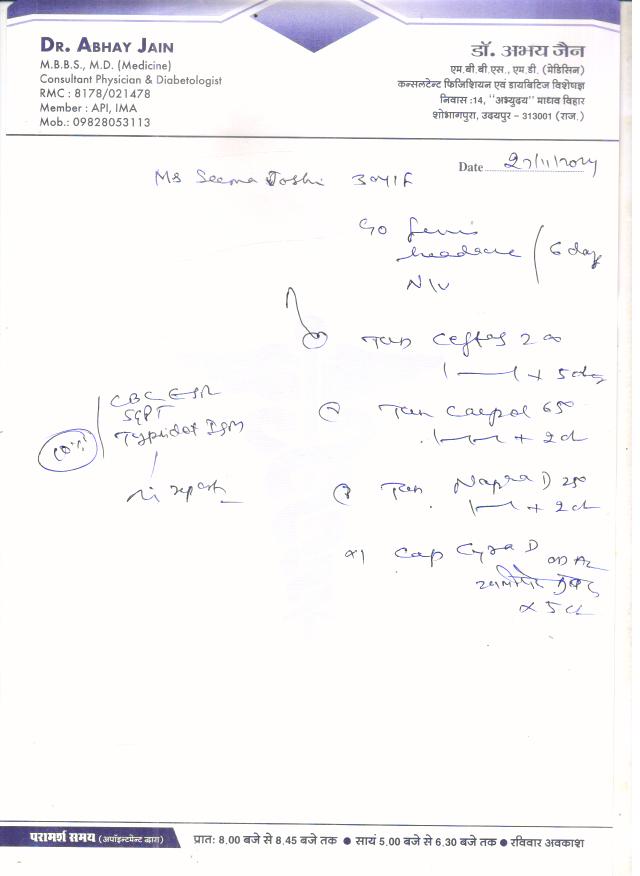 DR. ABHAY JAIN
M.B.B.S., M.D. (Medicine)
Consultant Physician & Diabetologist
RMC : 8178/021478
Member : API, IMA
Mob.: 09828053113
डॉ. अभय जैन
एम.बी.बी.एस., एम.डी. (मेडिसिन)
कन्सलटेन्ट फिजिशियन एवं डायबिटिज विशेषज्ञ
निवास :14, "अभ्युदय" माधव विहार
शोभागपुरा, उदयपुर - 313001 (राज.)
Date
Ms Seema Joshi 30y/F
headache
6 day
N/V
200
+ 5 day
Calpol 650
+ 2 d
Napra D 250
+ 2 d
Cap Cyra D
x 5 d
CBC ESR
SGPT
Typhidot IgM
परामर्श समय (अपॉइन्टमेन्ट द्वारा)
प्रातः 8.00 बजे से 8.45 बजे तक ● सायं 5.00 बजे से 6.30 बजे तक ● रविवार अवकाश